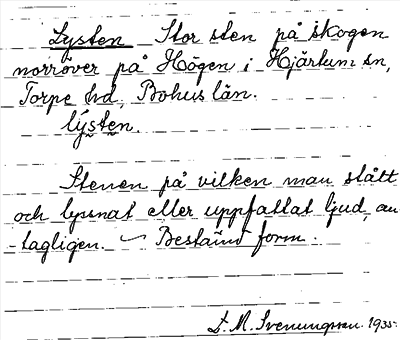 Lysten Stor sten på skogen
norröver på Högen i Hjärtum sn,
Torpe hd, Bohus län.
lýsten.
Stenen på vilken man stått
och lyssnat eller uppfattat ljud, an-
tagligen. ~ Bestämd form.
D. M. Svenungsson. 1935.